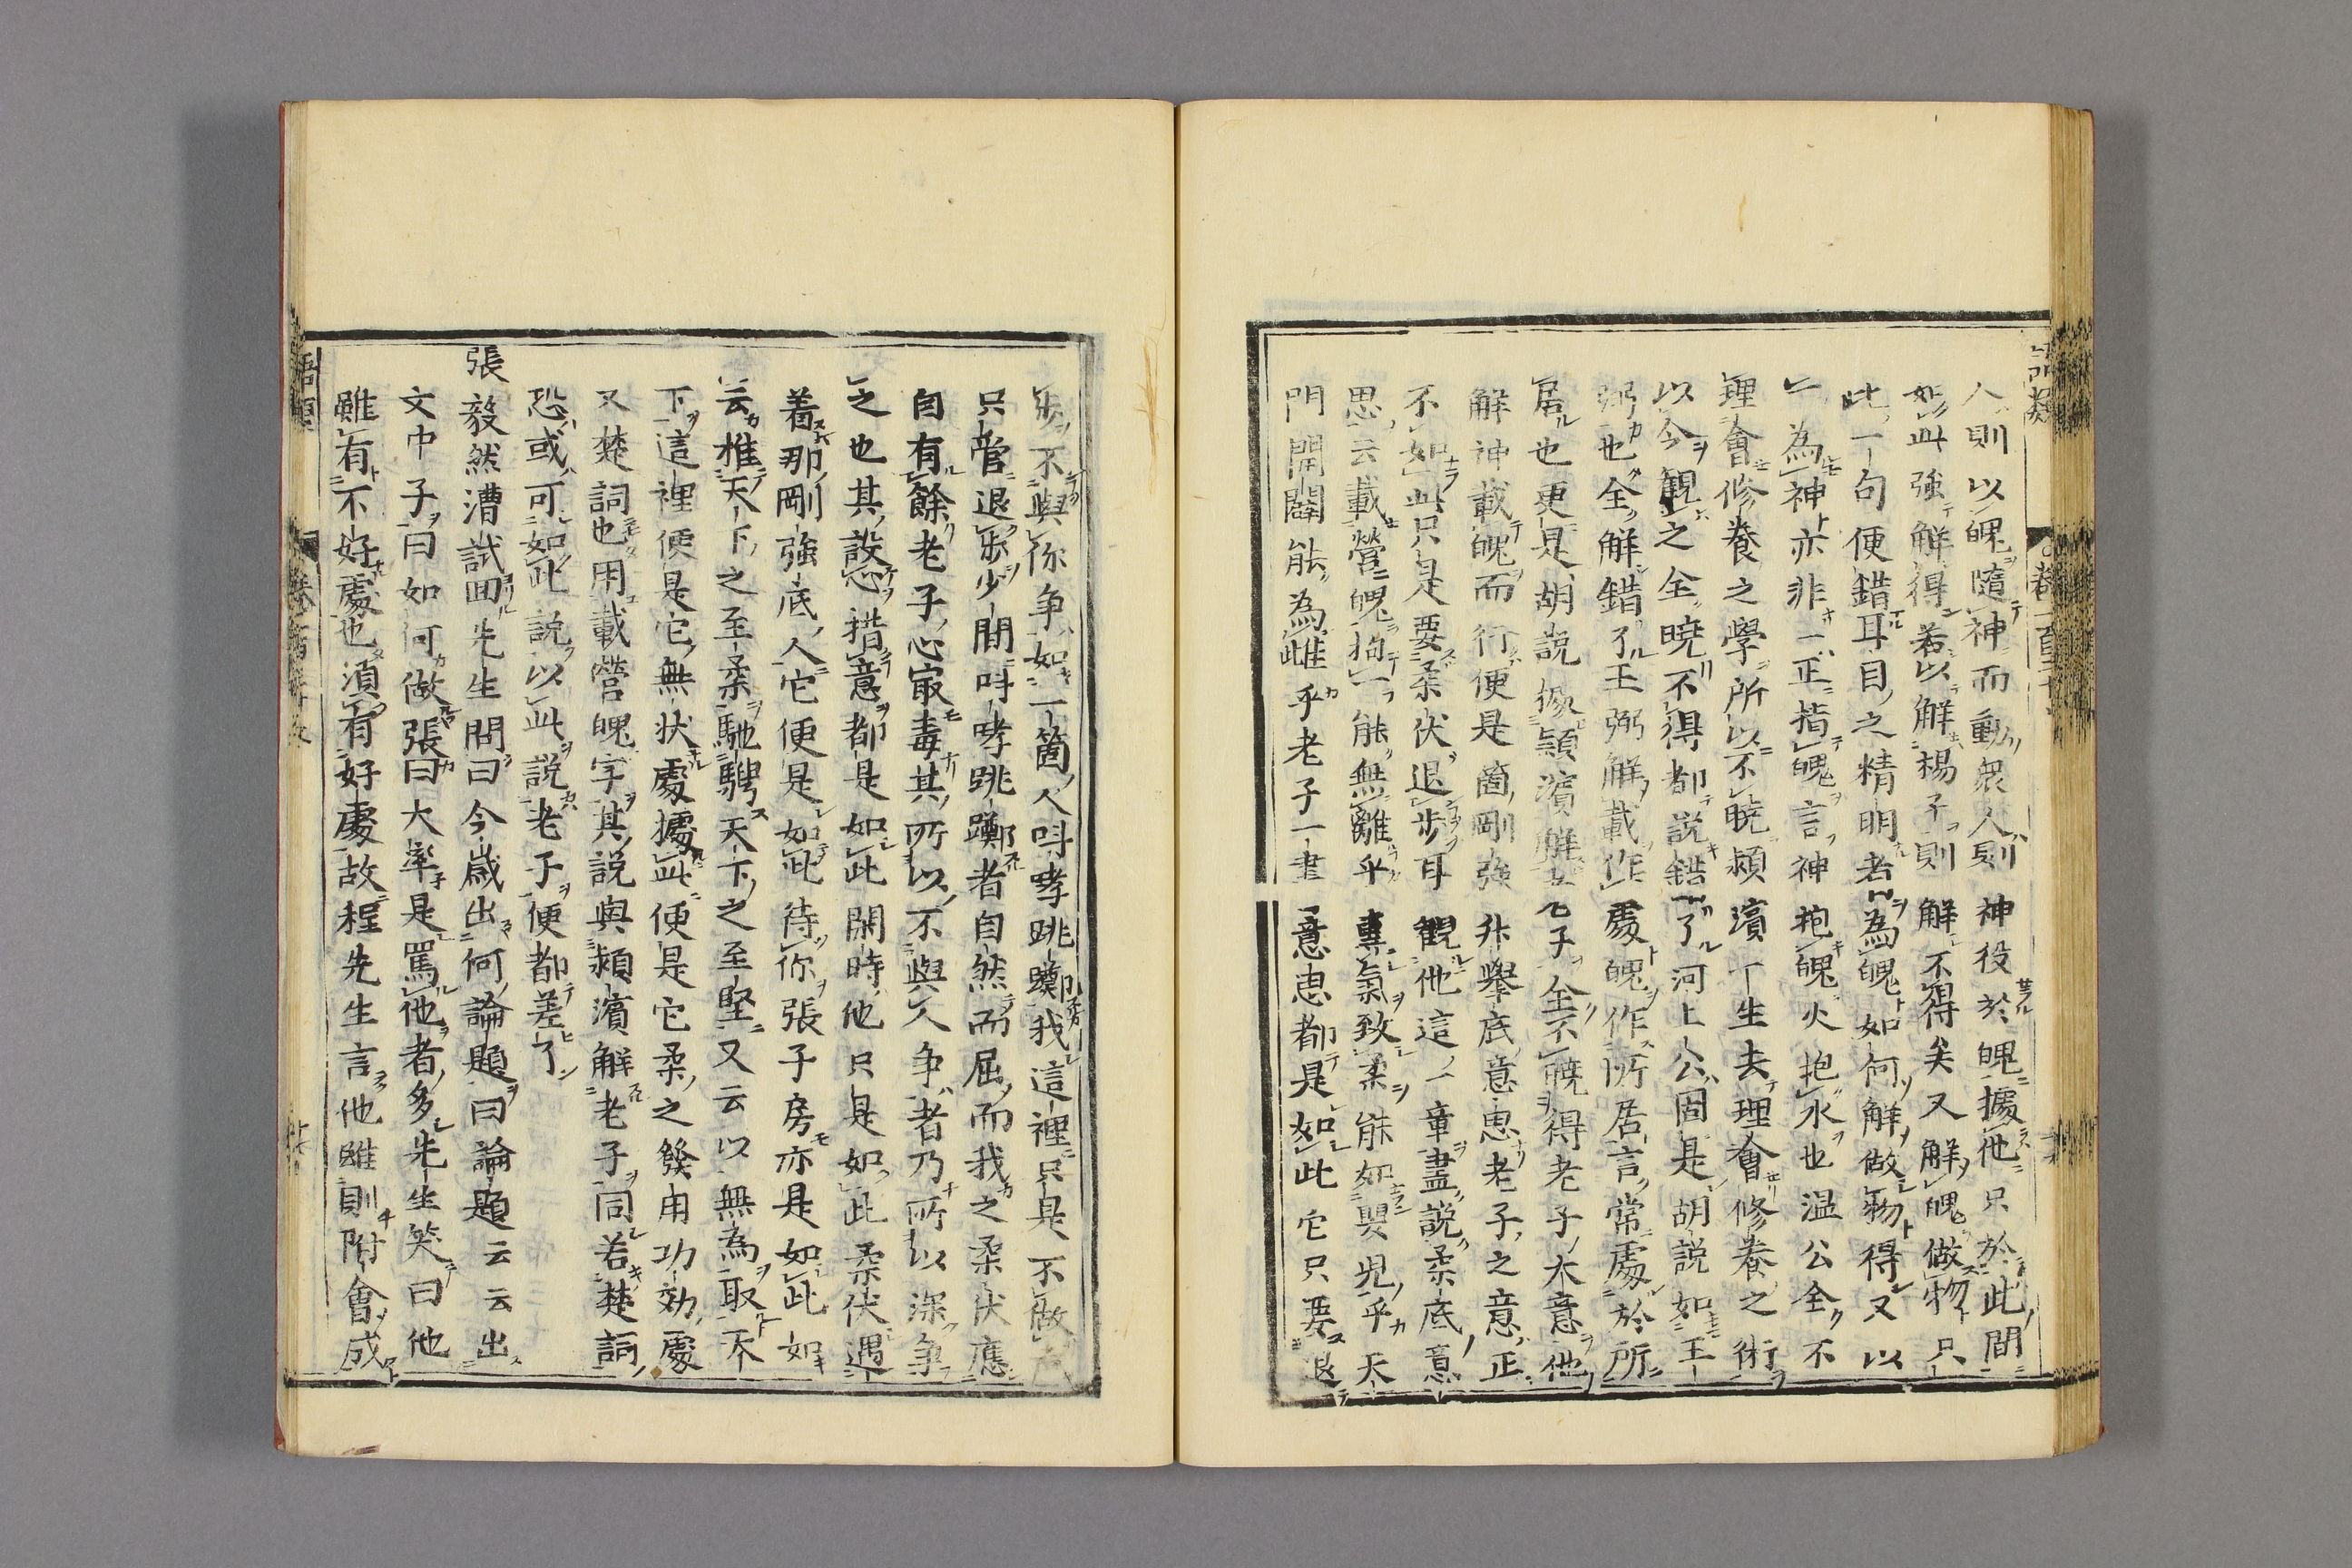 人則以魄隨神而動衆人則神役於魄據他只於此間
如此強解得若以解楊子則解不得矣又解魄做物只
此一句便錯耳目之精明者為魄如何解做物得又以
一為神亦非一正指魄言神抱魄火抱水也温公全不
理會修養之學所以不曉潁濱一生去理會修養之術
以今觀之全曉不得都說錯了河上公固是胡說如王
弼也全解錯了王弼解載作處魄作所居言常處於所
居也更是胡說據潁濱解老子全不曉得老子大意他
解神載魄而行便是箇剛強升舉底意思老子之意正
不如此只是要柔伏退步耳觀他這一章盡說柔底意
思云載營魄抱一能無離乎專氣致柔能如嬰兒乎天
門開闔能為雌乎老子一書意思都是如此它只要退
步不與你争如一箇人叫哮跳躑我這裡只是不做聲
只管退步少間叫哮跳躑者自然而屈而我之柔伏應
自有餘老子心最毒其所以不與人争者乃所以深争
之也其設心措意都是如此閑時他只是如此柔伏遇
着那剛強底人它便是如此待你張子房亦是如此如
云惟天下之至柔馳騁天下之至堅又云以無為取天
下這裡便是它無状處據此便是它柔之發用功効處
又楚詞也用載營魄字其說與潁濱解老子同若楚詞
恐或可如此說以此說老子便都差了
張毅然漕試回先生問曰今歳出何論題曰論題云云出
文中子曰如何做張曰大率是罵他者多先生笑曰他
雖有不好處也須有好處故程先生言他雖則附會成